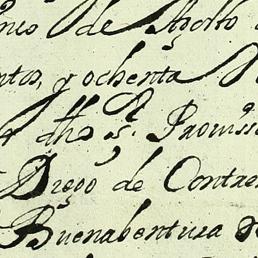 de Agosto
ntos, y ochenta
dho s.r Provis
Diego de Contre
Buenabentura de